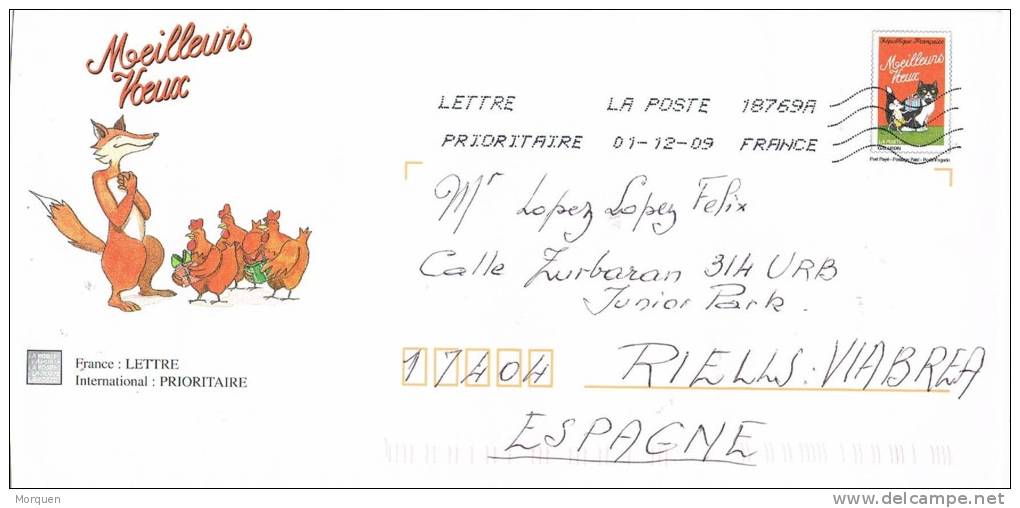 Meilleurs
Vœux
LETTRE LA POSTE 18769A
PRIORITAIRE 01-12-09 FRANCE
République Française
Meilleurs
Vœux
LA POSTE
Port Payé - Postage Paid - Porto Pagado
Mr Lopez Lopez Felix
Calle Zurbaran 314 URB
Junior Park.
17404 RIELLS. VIABREA
ESPAGNE
France : LETTRE
International : PRIORITAIRE
Morquen
delcampe.net